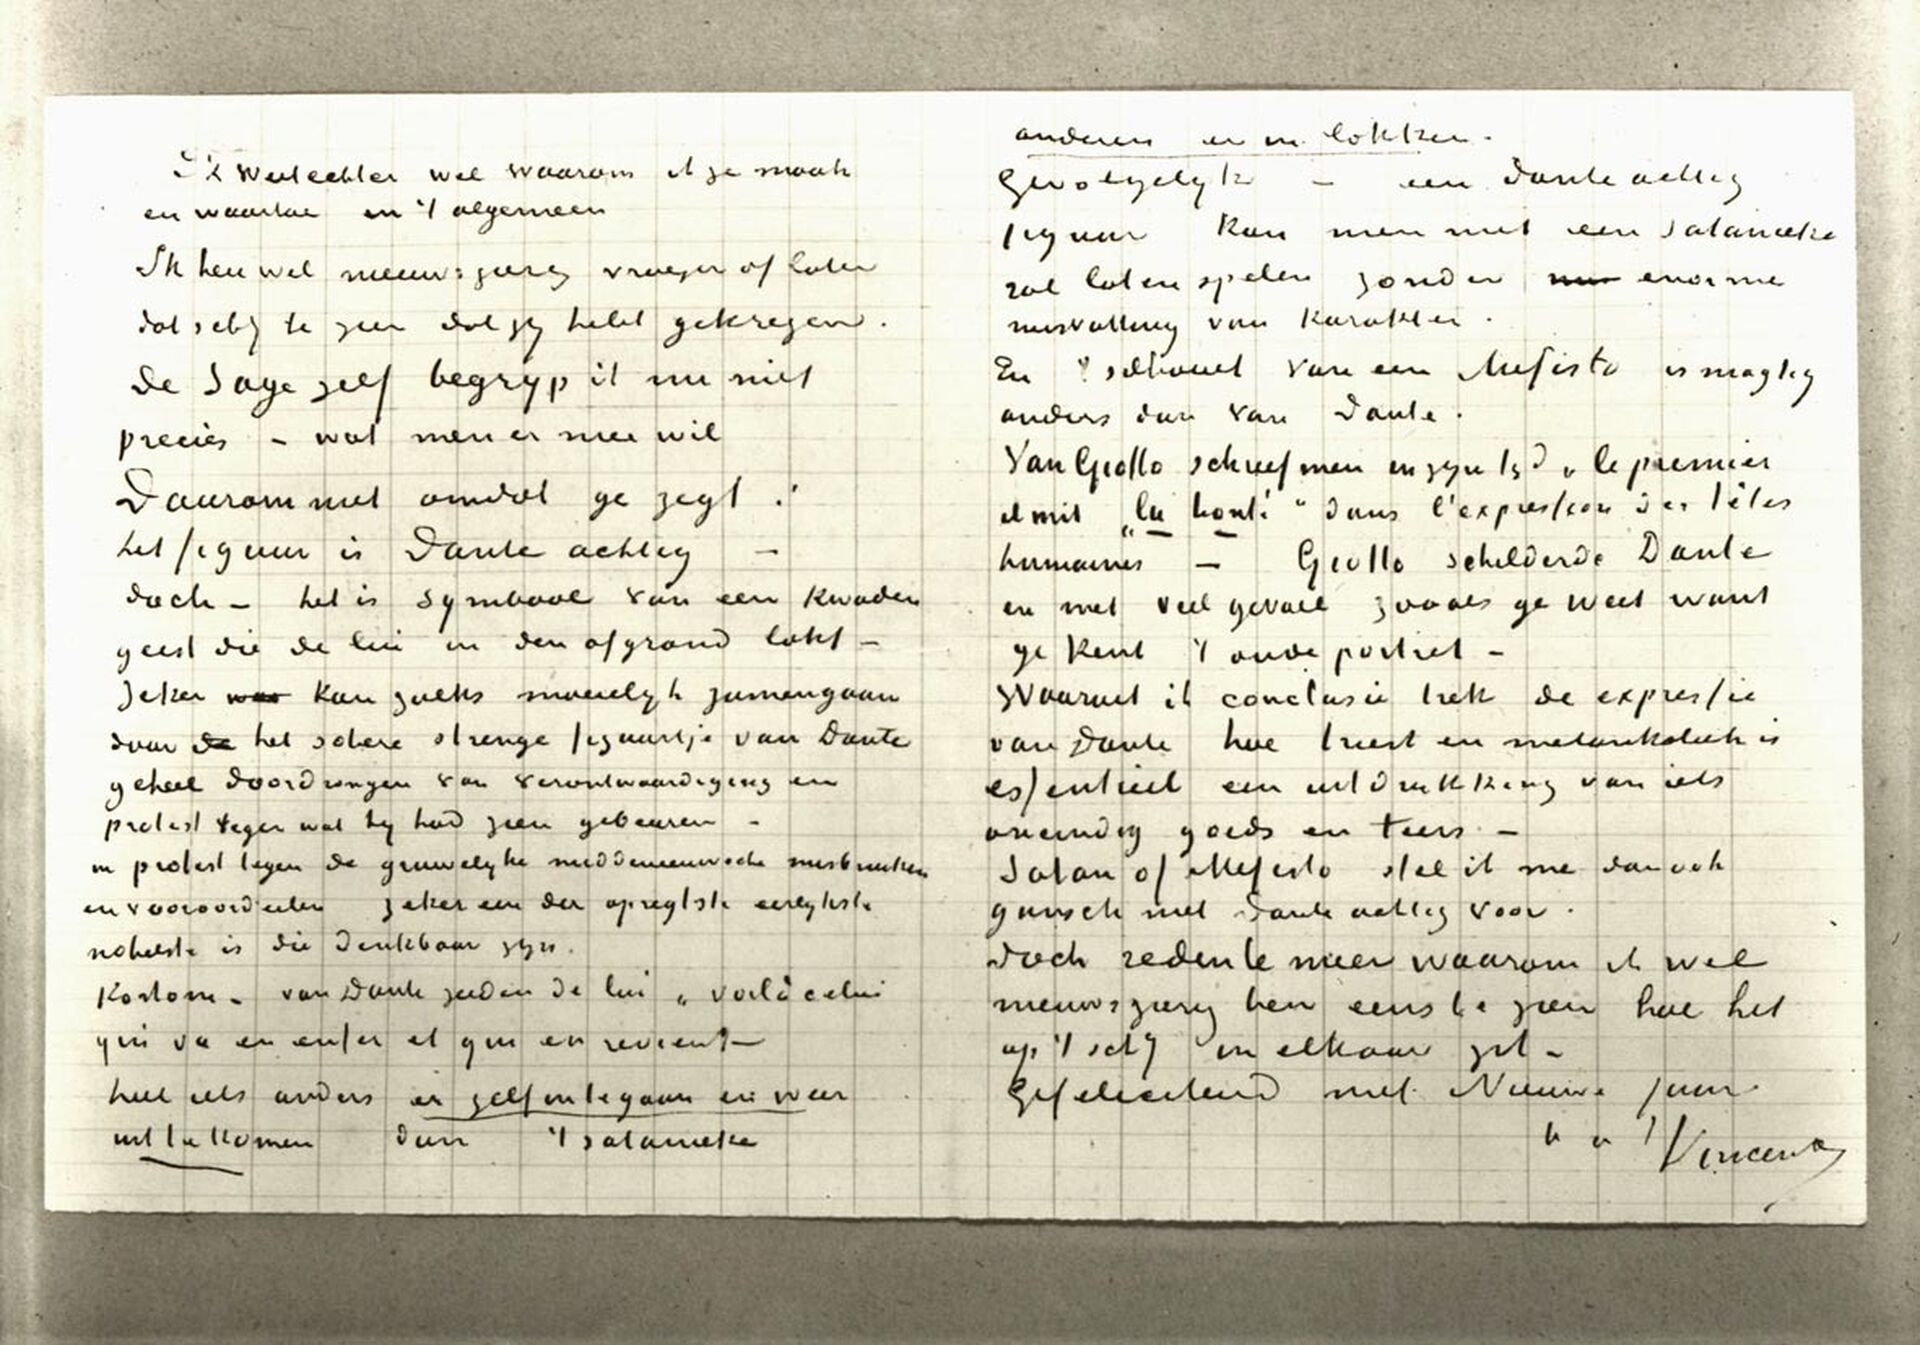 Ik weet echter wel waarom ik ze maak
en waartoe in 't algemeen
Ik ben wel nieuwsgierig vroeger of later
dat schij te zien dat gij hebt gekregen.
De Sage zelf begryp ik nu niet
precies – wat men er mee wil
Daarom niet omdat ge zegt :
het figuur is Dante achtig –
doch – het is symbool van een kwaden
geest die de lui in den afgrond lokt –
Zeker was kan zoiets moeielyk zamengaan
daar de het sobere strenge figuurtje van Dante
geheel doordrongen van verontwaardiging en
protest tegen wat hy had zien gebeuren –
in protest tegen de gruwelyke middeneeuwsche misbruiken
en vooroordeelen zeker een der opregtste eerlykste
nobelste is die denkbaar zyn.
Kortom – van Dante zeiden de lui „ voilà celui
qui va en enfer et qui en revient –
heel iets anders er zelf in te gaan en weer
uit te komen dan 't satanieke
anderen er in lokken.
Gevolgelyk – een Dante achtig
figuur kan men niet een satanieke
rol laten spelen zonder enorme
misvatting van karakter.
En 't silhouet van een Mefisto is magtig
anders dan van Dante.
Van Giotto schreef men in zijn tyd „ le premier
il mit „la bonté" dans l'expression des têtes
humaines – Giotto schilderde Dante
en met veel gevoel zooals ge weet want
ge kent 't oude portret –
Waaruit ik conclusie trek de expressie
van Dante hoe triest en melankoliek is
essentieel een uitdrukking van iets
oneindig goeds en teers. –
Satan of Mefisto stel ik me dan ook
gansch niet Dante achtig voor.
Doch reden te meer waarom ik wel
nieuwsgierig ben eens te zien hoe het
op 't schij in elkaar zit –
Gefeliciteerd met Nieuwe jaar
t. à t. Vincent